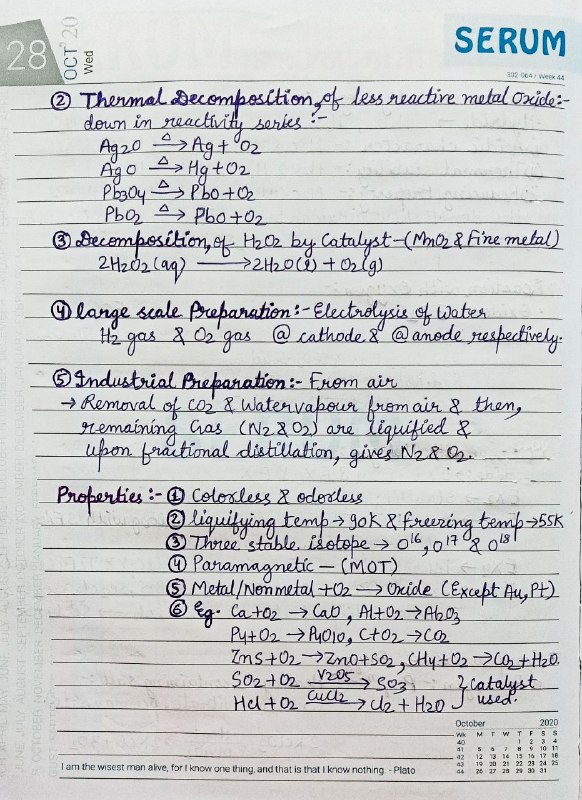 28 OCT '20
Wed
SERUM
302-064 / Week 44
② Thermal Decomposition, of less reactive metal Oxide:-
down in reactivity series :-
Ag2O —Δ→ Ag + O2
AgO —Δ→ Hg + O2
Pb3O4 —Δ→ PbO + O2
PbO2 —Δ→ PbO + O2
③ Decomposition, of H2O2 by Catalyst - (MnO2 & Fine metal)
2H2O2 (aq) ⟶ 2H2O(l) + O2(g)
④ large scale Preparation:- Electrolysis of Water
H2 gas & O2 gas @ cathode & @ anode respectively.
⑤ Industrial Preparation:- From air
→ Removal of CO2 & Water vapour from air & then,
remaining Gas (N2 & O2) are liquified &
upon fractional distillation, gives N2 & O2.
Properties :- ① Colorless & odorless
② liquifying temp → 90K & freezing temp → 55K
③ Three stable isotope → O16, O17 & O18
④ Paramagnetic - (MOT)
⑤ Metal/Nonmetal + O2 → Oxide (Except Au, Pt)
⑥ Eg. Ca + O2 → CaO, Al + O2 → Al2O3
P4 + O2 → P4O10, C + O2 → CO2
ZnS + O2 → ZnO + SO2, CH4 + O2 → CO2 + H2O.
SO2 + O2 —V2O5→ SO3 } Catalyst
HCl + O2 —CuCl2→ Cl2 + H2O } used.
October 2020
Wk M T W T F S S
40 1 2 3 4
41 5 6 7 8 9 10 11
42 12 13 14 15 16 17 18
43 19 20 21 22 23 24 25
44 26 27 28 29 30 31
I am the wisest man alive, for I know one thing, and that is that I know nothing. - Plato